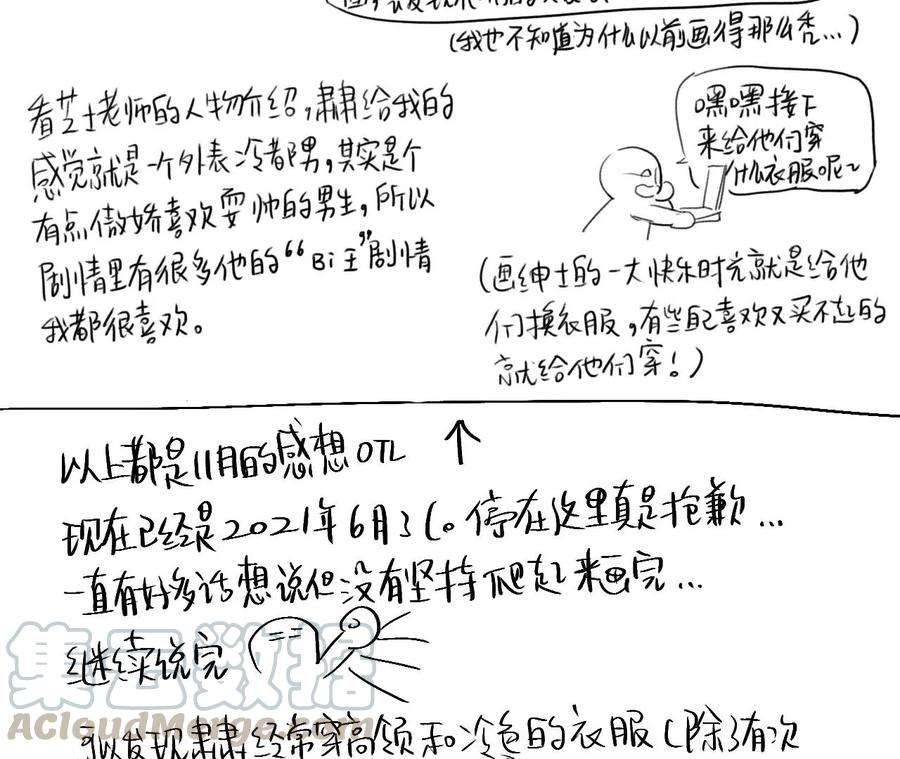 (我也不知道为什么以前画得那么秃...)
看芝士老师的人物介绍,肃肃给我的
感觉就是一个外表冷都男,其实是个
有点傲娇喜欢耍帅的男生,所以
剧情里有很多他的“Bi王”剧情
我都很喜欢。
嘿嘿接下
来给他们穿
什么衣服呢~
(画绅士的一大快乐时光就是给他
们换衣服,有些自己喜欢又买不起的
就给他们穿!)
以上都是11月的感想OTL ↑
现在已经是2021年6月3(。停在这里真是抱歉...
一直有好多话想说但没有坚持爬起来画完...
继续说完
集云数据
ACloudMerge.com
发现肃肃经常穿高领和冷色的衣服(除了有次